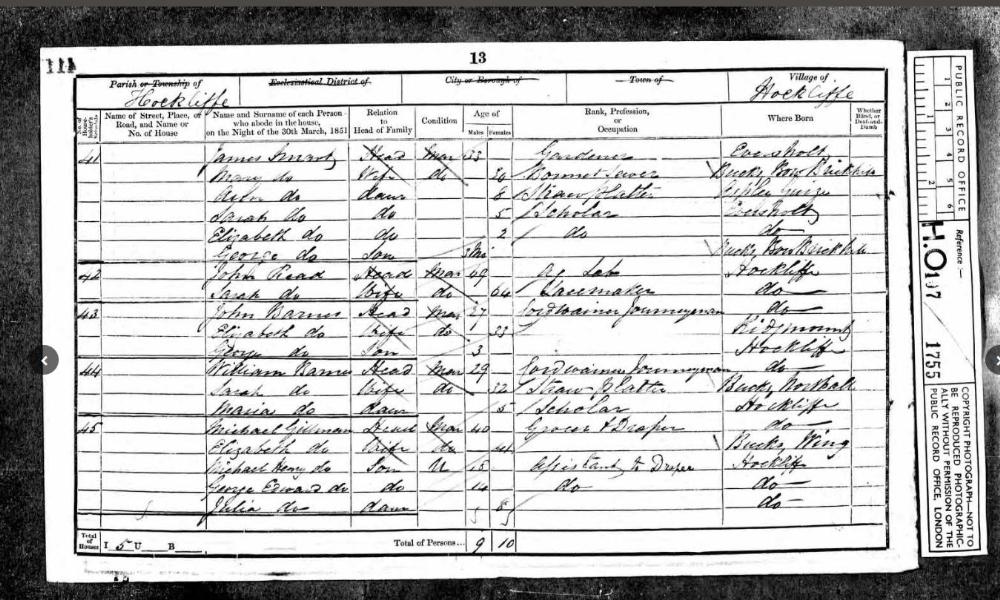 13
Parish or Township of
Hockliffe
Ecclesiastical District of
City or Borough of
Town of
Village of
Hockliffe
No. of House-holder's Schedule
Name of Street, Place, or Road, and Name or No. of House
Name and Surname of each Person who abode in the house, on the Night of the 30th March, 1851
Relation to Head of Family
Condition
Age of
Males Females
Rank, Profession, or Occupation
Where Born
Whether Blind, or Deaf-and-Dumb
41 James Smart Head Mar 33 Gardener Eversholt
Mary do Wife do Bonnet Sewer Bucks Bow Brickhill
do daur 8 Straw Platter Aspley Guise
Sarah do do 5 Scholar Eversholt
Elizabeth do do 2 do do
George do Son Bucks Bow Brickhill
42 John Read Head Mar 69 Ag Lab Hockliffe
Sarah do Wife do 64 Lacemaker do
43 John Barnes Head Mar 27 Cordwainer Journeyman do
Elizabeth do Wife do 33 Ridgmount
George do Son 3 Hockliffe
44 William Barnes Head Mar 29 Cordwainer Journeyman do
Sarah do Wife do 32 Straw Platter Bucks Northall
Maria do daur 5 Scholar Hockliffe
45 Michael Gilman Head Mar 40 Grocer & Draper do
Elizabeth do Wife do 41 Bucks Wing
Michael Henry do Son U 15 Assistant to Draper Hockliffe
George Edward do do 14 do do
Julia do daur 8 do
Total of Houses I 5 U B
Total of Persons... 9 10
PUBLIC RECORD OFFICE
1 2 3 4 5 6
Reference :-
H.O. 107 1755
COPYRIGHT PHOTOGRAPH—NOT TO BE REPRODUCED PHOTOGRAPHICALLY WITHOUT PERMISSION OF THE PUBLIC RECORD OFFICE, LONDON